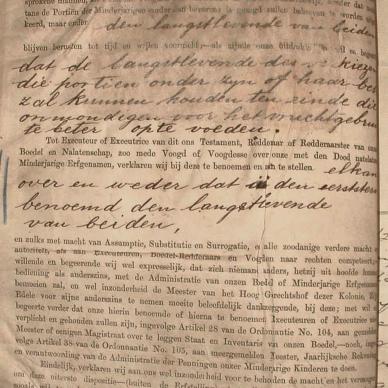 keerd, maar onder den langstlevende van beiden
blijven berusten tot tijd en wijlen
dat de langstlevende des kiezen
die portien onder zyn of haar
zal kunnen houden ten einde die
onmondigen voor het vruchtgebruik
te beter op te voeden.
Tot Executeur of Executrice van dit ons Testament, Redderaar of Redderaarster van ons
Boedel en Nalatenschap, zoo mede Voogd of Voogdesse over onze met den Dood natelaten
Minderjarige Erfgenamen, verklaren wij bij deze te benoemen en aan te stellen. elkan
over en weder dat is den eerststerv
benoemd den langstlevende
van beiden,
en zulks met macht van Assumptie, Substitutie en Surrogatie, en alle zoodanige verdere macht
autoriteit, als aan Executeuren, Boedel-Redderaars en Voogden naar rechten competeert,
willende en begeerende wij wel expresselijk, dat zich niemand anders, hetzij uit hoofde
bediening als anderszins, met de Administratie van onzen Boedel of Minderjarige Erfgenamen
bemoeien zal, en wel inzonderheid de Meester van het Hoog Gerechtshof dezer Kolonie,
Edele voor zijne anderszins te nemen moeite beleefdelijk dankzeggende, bij deze; met wil
begeerte verder dat onze hierin benoemde of hierna te benoemen Executeuren of Executrice
verplicht en gehouden zullen zijn, ingevolge Artikel 28 van de Ordonnantie No. 104, aan gemelden
Meester of eenigen Magistraat over te leggen Staat en Inventaris van onzen Boedel,—noch,
volge Artikel 38 van de Ordonnantie No. 105, aan meergemelden Meester, Jaarlijksche Rekening
en verantwoording van de Administratie der Penningen onzer Minderjarige Kinderen te doen.
Eindelijk, verklaren wij aan ons wel inzonderheid voor te behouden de macht en het
om deze uiterste dispositie—(buiten de Erfstelling